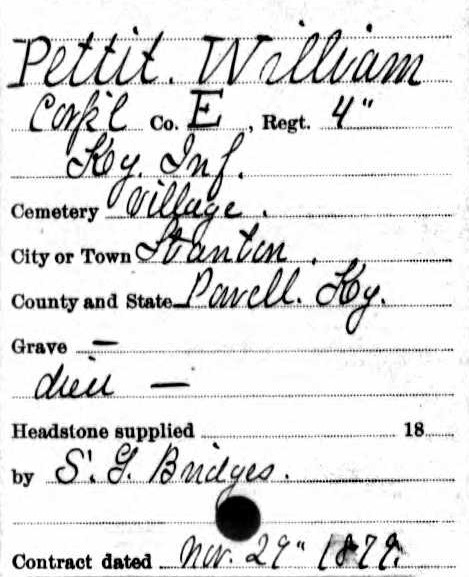 Pettit. William
Corp'l Co. E, Regt. 4"
Ky. Inf.
Cemetery Village.
City or Town Stanton.
County and State Powell. Ky.
Grave —
died —
Headstone supplied 18
by S. G. Bridges.
Contract dated Nov. 29" 1879.